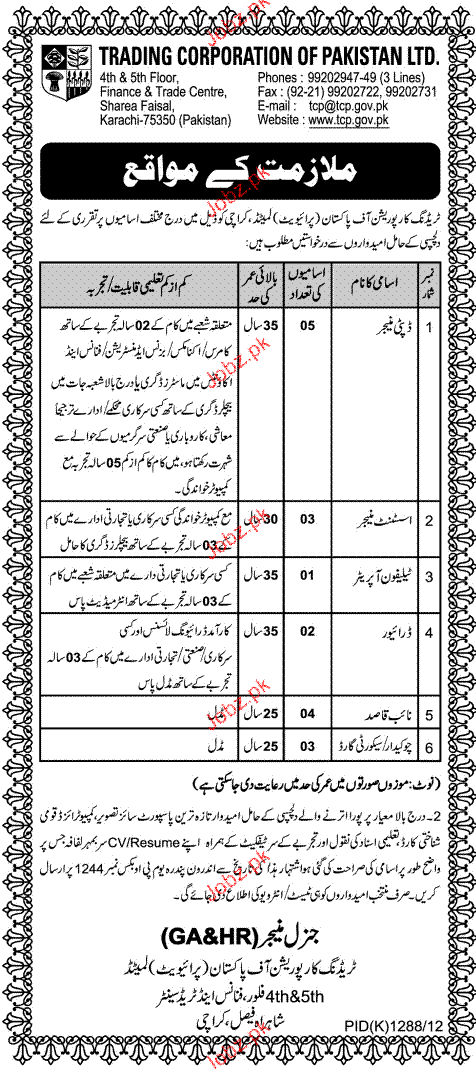 TRADING CORPORATION OF PAKISTAN LTD.
4th & 5th Floor,
Finance & Trade Centre,
Sharea Faisal,
Karachi-75350 (Pakistan)
Phones : 99202947-49 (3 Lines)
Fax : (92-21) 99202722, 99202731
E-mail : tcp@tcp.gov.pk
Website : www.tcp.gov.pk
ملازمت کے مواقع
ٹریڈنگ کارپوریشن آف پاکستان (پرائیویٹ) لمیٹڈ، کراچی کو ذیل میں درج مختلف اسامیوں پر تقرری کے لئے
دلچسپی کے حامل امیدواروں سے درخواستیں مطلوب ہیں:
نمبر شمار | اسامی کا نام | اسامیوں کی تعداد | بالائی عمر کی حد | کم از کم تعلیمی قابلیت/تجربہ
1 | ڈپٹی منیجر | 05 | 35 سال | متعلقہ شعبے میں کام کے 02 سالہ تجربے کے ساتھ
کامرس/اکنامکس/بزنس ایڈمنسٹریشن/فنانس اینڈ
اکاؤنٹس میں ماسٹرز ڈگری یا درج بالا شعبہ جات میں
بیچلرز ڈگری کے ساتھ کسی سرکاری محکمے/ادارے ترجیحاً
معاشی، کاروباری یا صنعتی سرگرمیوں کے حوالے سے
شہرت رکھتا ہو، میں کام کا کم از کم 05 سالہ تجربہ مع
کمپیوٹر خواندگی۔
2 | اسسٹنٹ منیجر | 03 | 30 سال | مع کمپیوٹر خواندگی کسی سرکاری یا تجارتی ادارے میں کام
کے 03 سالہ تجربے کے ساتھ بیچلرز ڈگری کا حامل
3 | ٹیلیفون آپریٹر | 01 | 35 سال | کسی سرکاری یا تجارتی دارے میں متعلقہ شعبے میں کام
کے 03 سالہ تجربے کے ساتھ انٹرمیڈیٹ پاس
4 | ڈرائیور | 02 | 35 سال | کارآمد ڈرائیونگ لائسنس اور کسی
سرکاری/صنعتی/تجارتی ادارے میں کام کے 03 سالہ
تجربے کے ساتھ مڈل پاس
5 | نائب قاصد | 04 | 25 سال | مڈل
6 | چوکیدار/سیکورٹی گارڈ | 03 | 25 سال | مڈل
(نوٹ: موزوں صورتوں میں عمر کی حد میں رعایت دی جا سکتی ہے)
2۔ درج بالا معیار پر پورا اترنے والے دلچسپی کے حامل امیدوار تازہ ترین پاسپورٹ سائز تصویر، کمپیوٹرائزڈ قومی
شناختی کارڈ، تعلیمی اسناد کی نقول اور تجربے کے سرٹیفکیٹ کے ہمراہ اپنے CV/Resume سربمہر لفافہ جس پر
واضح طور پر اسامی کی صراحت کی گئی ہو اشتہار ہذا کی تاریخ سے اندرون پندرہ یوم پی او بکس نمبر 1244 پر ارسال
کریں۔ صرف منتخب امیدواروں کو ہی ٹیسٹ/انٹرویو کی اطلاع دی جائے گی۔
جنرل منیجر (GA&HR)
ٹریڈنگ کارپوریشن آف پاکستان (پرائیویٹ) لمیٹڈ
4th&5th فلور، فنانس اینڈ ٹریڈ سینٹر
شاہراہ فیصل، کراچی
PID(K)1288/12
Jobz.pk
Jobz.pk
Jobz.pk
Jobz.pk
Jobz.pk
Jobz.pk
Jobz.pk